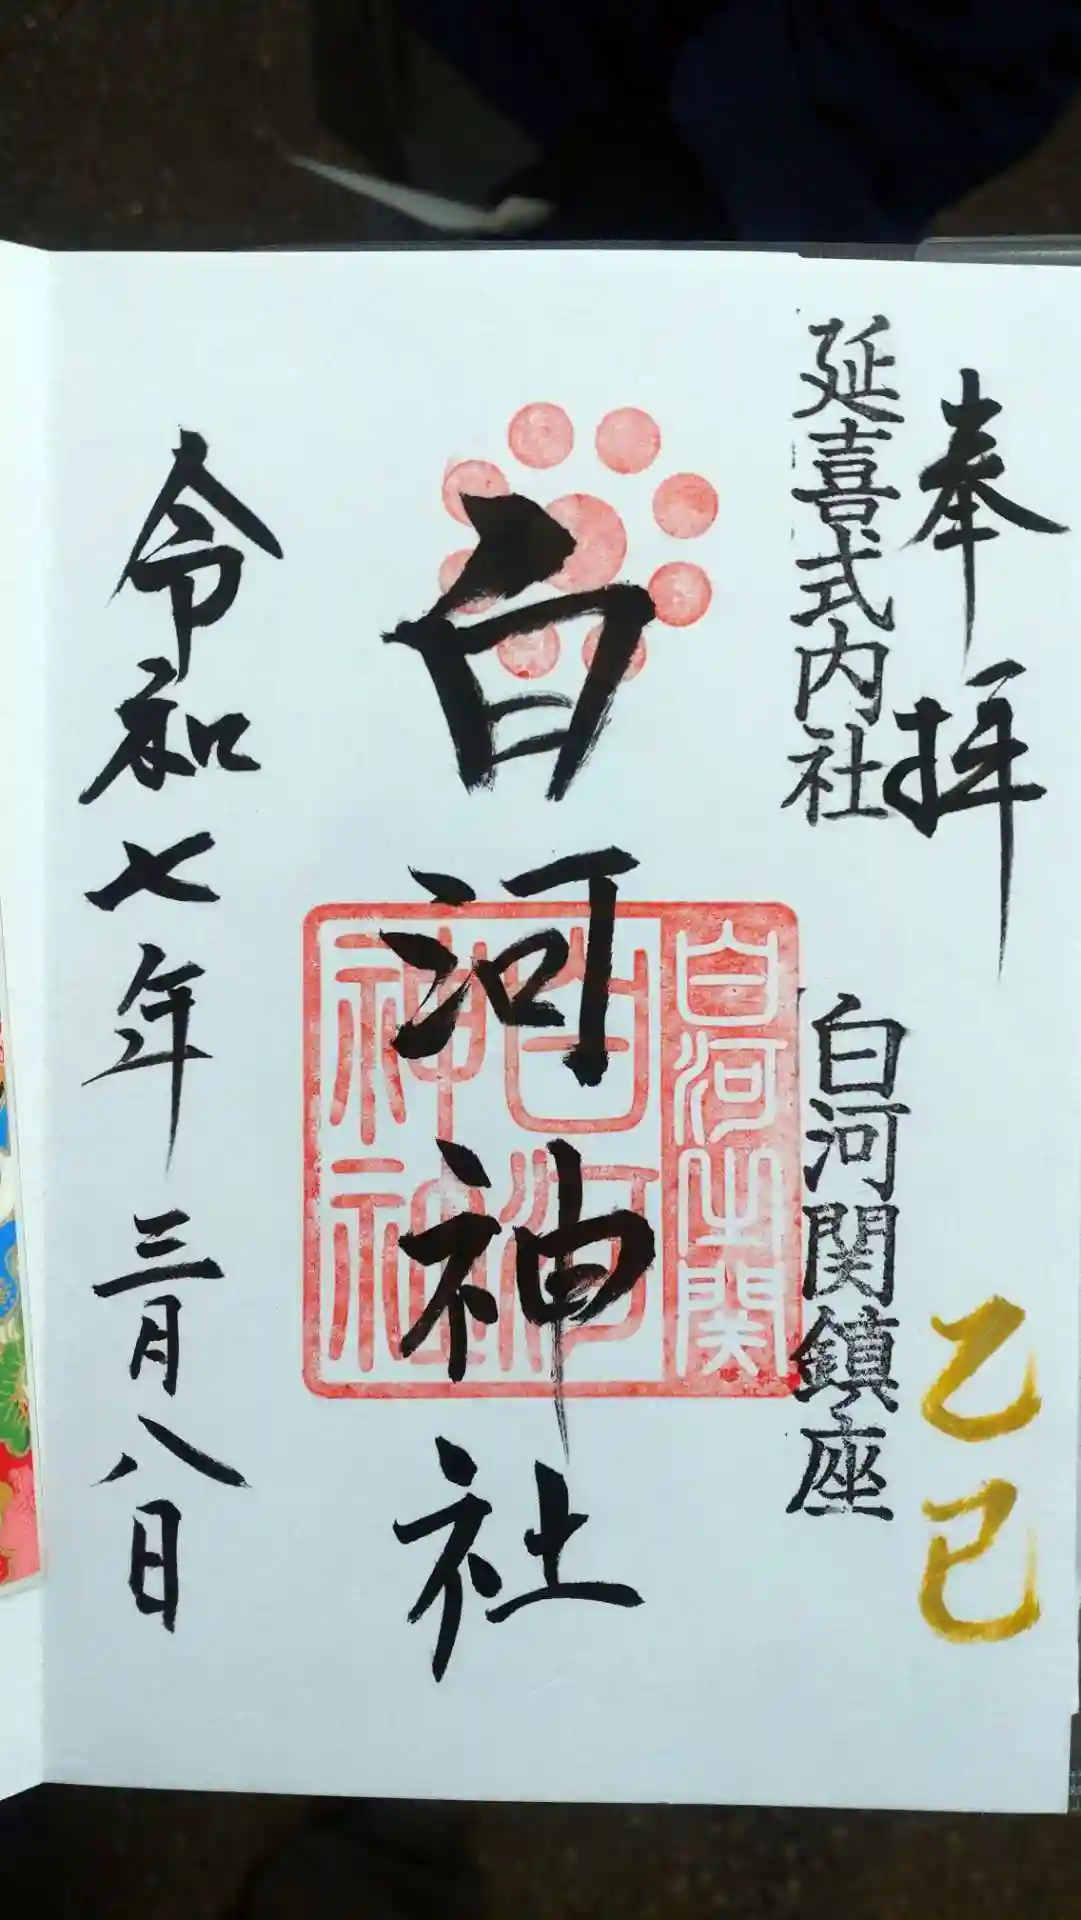 奉拝
乙巳
延喜式内社
白河関鎮座
白河神社
白河之関
白河
神社
令和七年三月八日